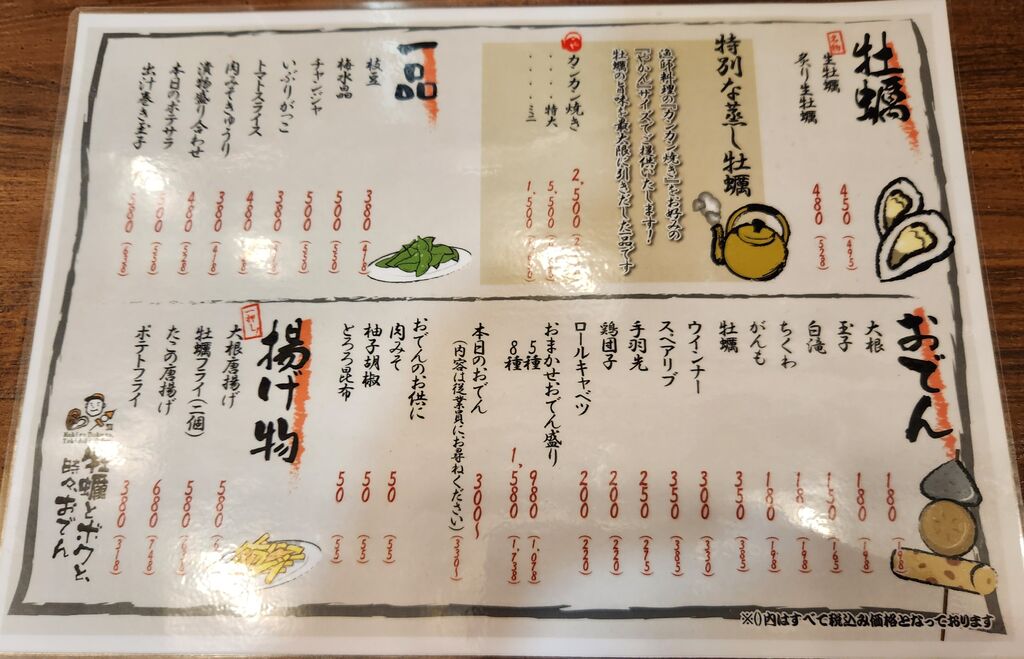 牡蠣
名物
生牡蠣 450 (495)
炙り生牡蠣 480 (528)
特別な蒸し牡蠣
漁師料理の『カンカン焼き』をお好みの
『やかん』サイズでご提供いたします！
牡蠣の旨味を最大限に引きだした一品です
カンカン焼き 2,500
・・・・特大 5,500
・・・・ミニ 1,500
一品
枝豆 380 (418)
梅水晶 500 (550)
チャンジャ 500 (550)
いぶりがっこ 380 (418)
トマトスライス 480
肉みそきゅうり 380 (418)
漬物盛り合わせ 480
本日のポテサラ
出汁巻き玉子
おでん
大根 180 (198)
玉子 180 (198)
白滝 150 (165)
ちくわ 180 (198)
がんも 180 (198)
牡蠣 350 (385)
ウインナー 300 (330)
スペアリブ 350 (385)
手羽先 250 (275)
鶏団子 200 (220)
ロールキャベツ 200 (220)
おまかせおでん盛り
5種 980 (1,078)
8種 1,580 (1,738)
本日のおでん 300〜
(内容は従業員にお尋ねください) (330〜)
おでんのお供に
肉みそ 50 (55)
柚子胡椒 50 (55)
とろろ昆布 50 (55)
揚げ物
一押し
大根唐揚げ 580
牡蠣フライ(二個) 580
たこの唐揚げ 680 (748)
ポテトフライ 380 (418)
牡蠣とボクと、
時々、おでん
※()内はすべて税込み価格となっております